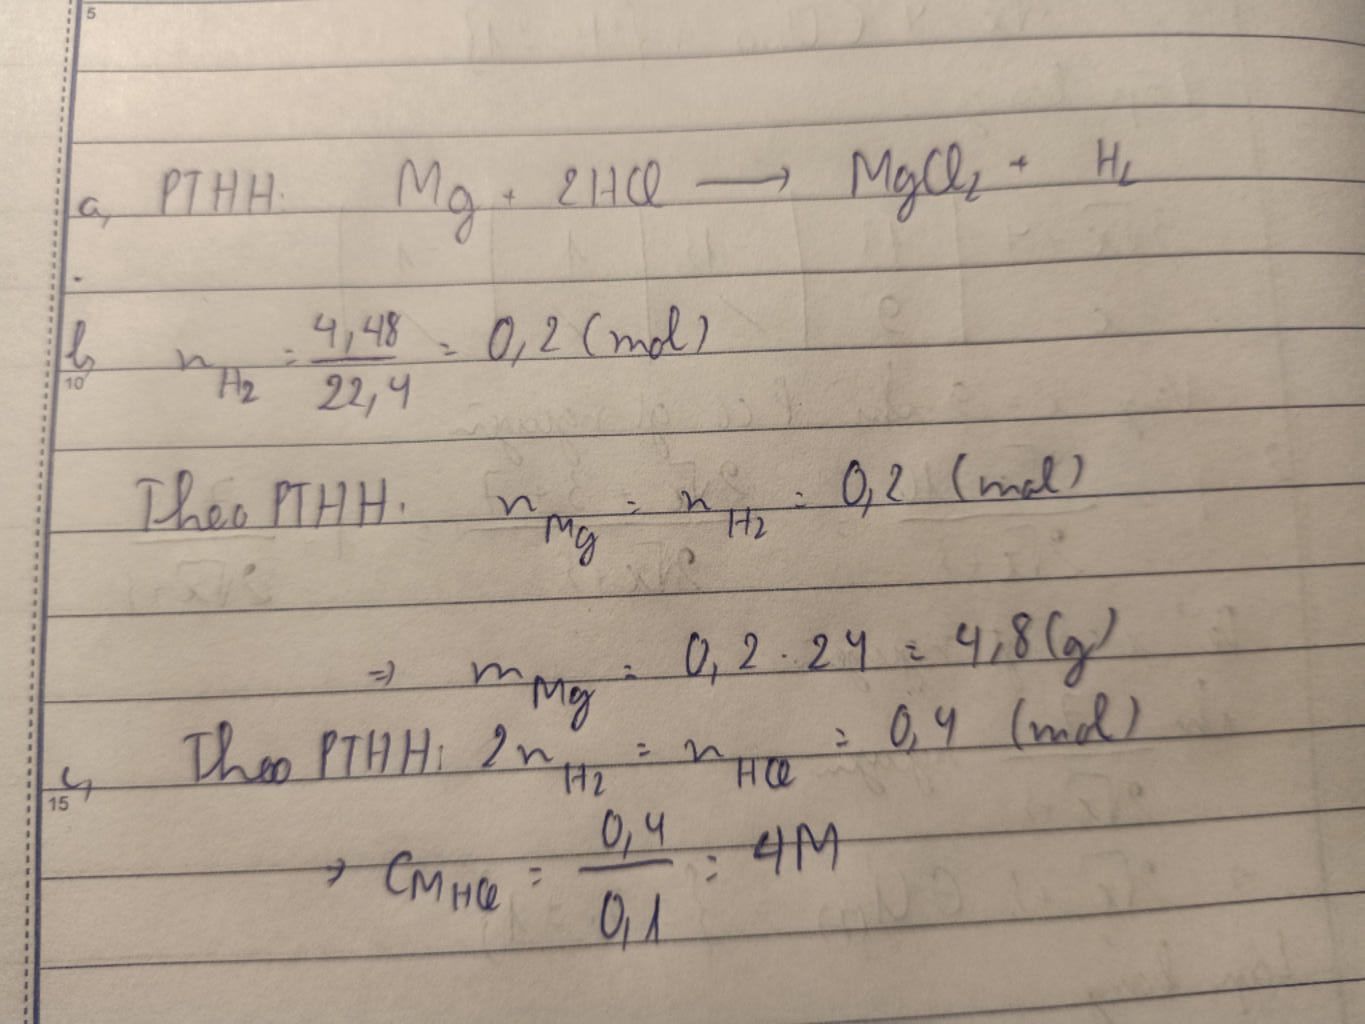 5
a, PTHH: Mg + 2HCl → MgCl₂ + H₂
b, n H₂ = 4,48 / 22,4 = 0,2 (mol)
10
Theo PTHH: n Mg = n H₂ = 0,2 (mol)
=> m Mg = 0,2 . 24 = 4,8 (g)
c, Theo PTHH: 2n H₂ = n HCl = 0,4 (mol)
15
→ CM HCl = 0,4 / 0,1 = 4M